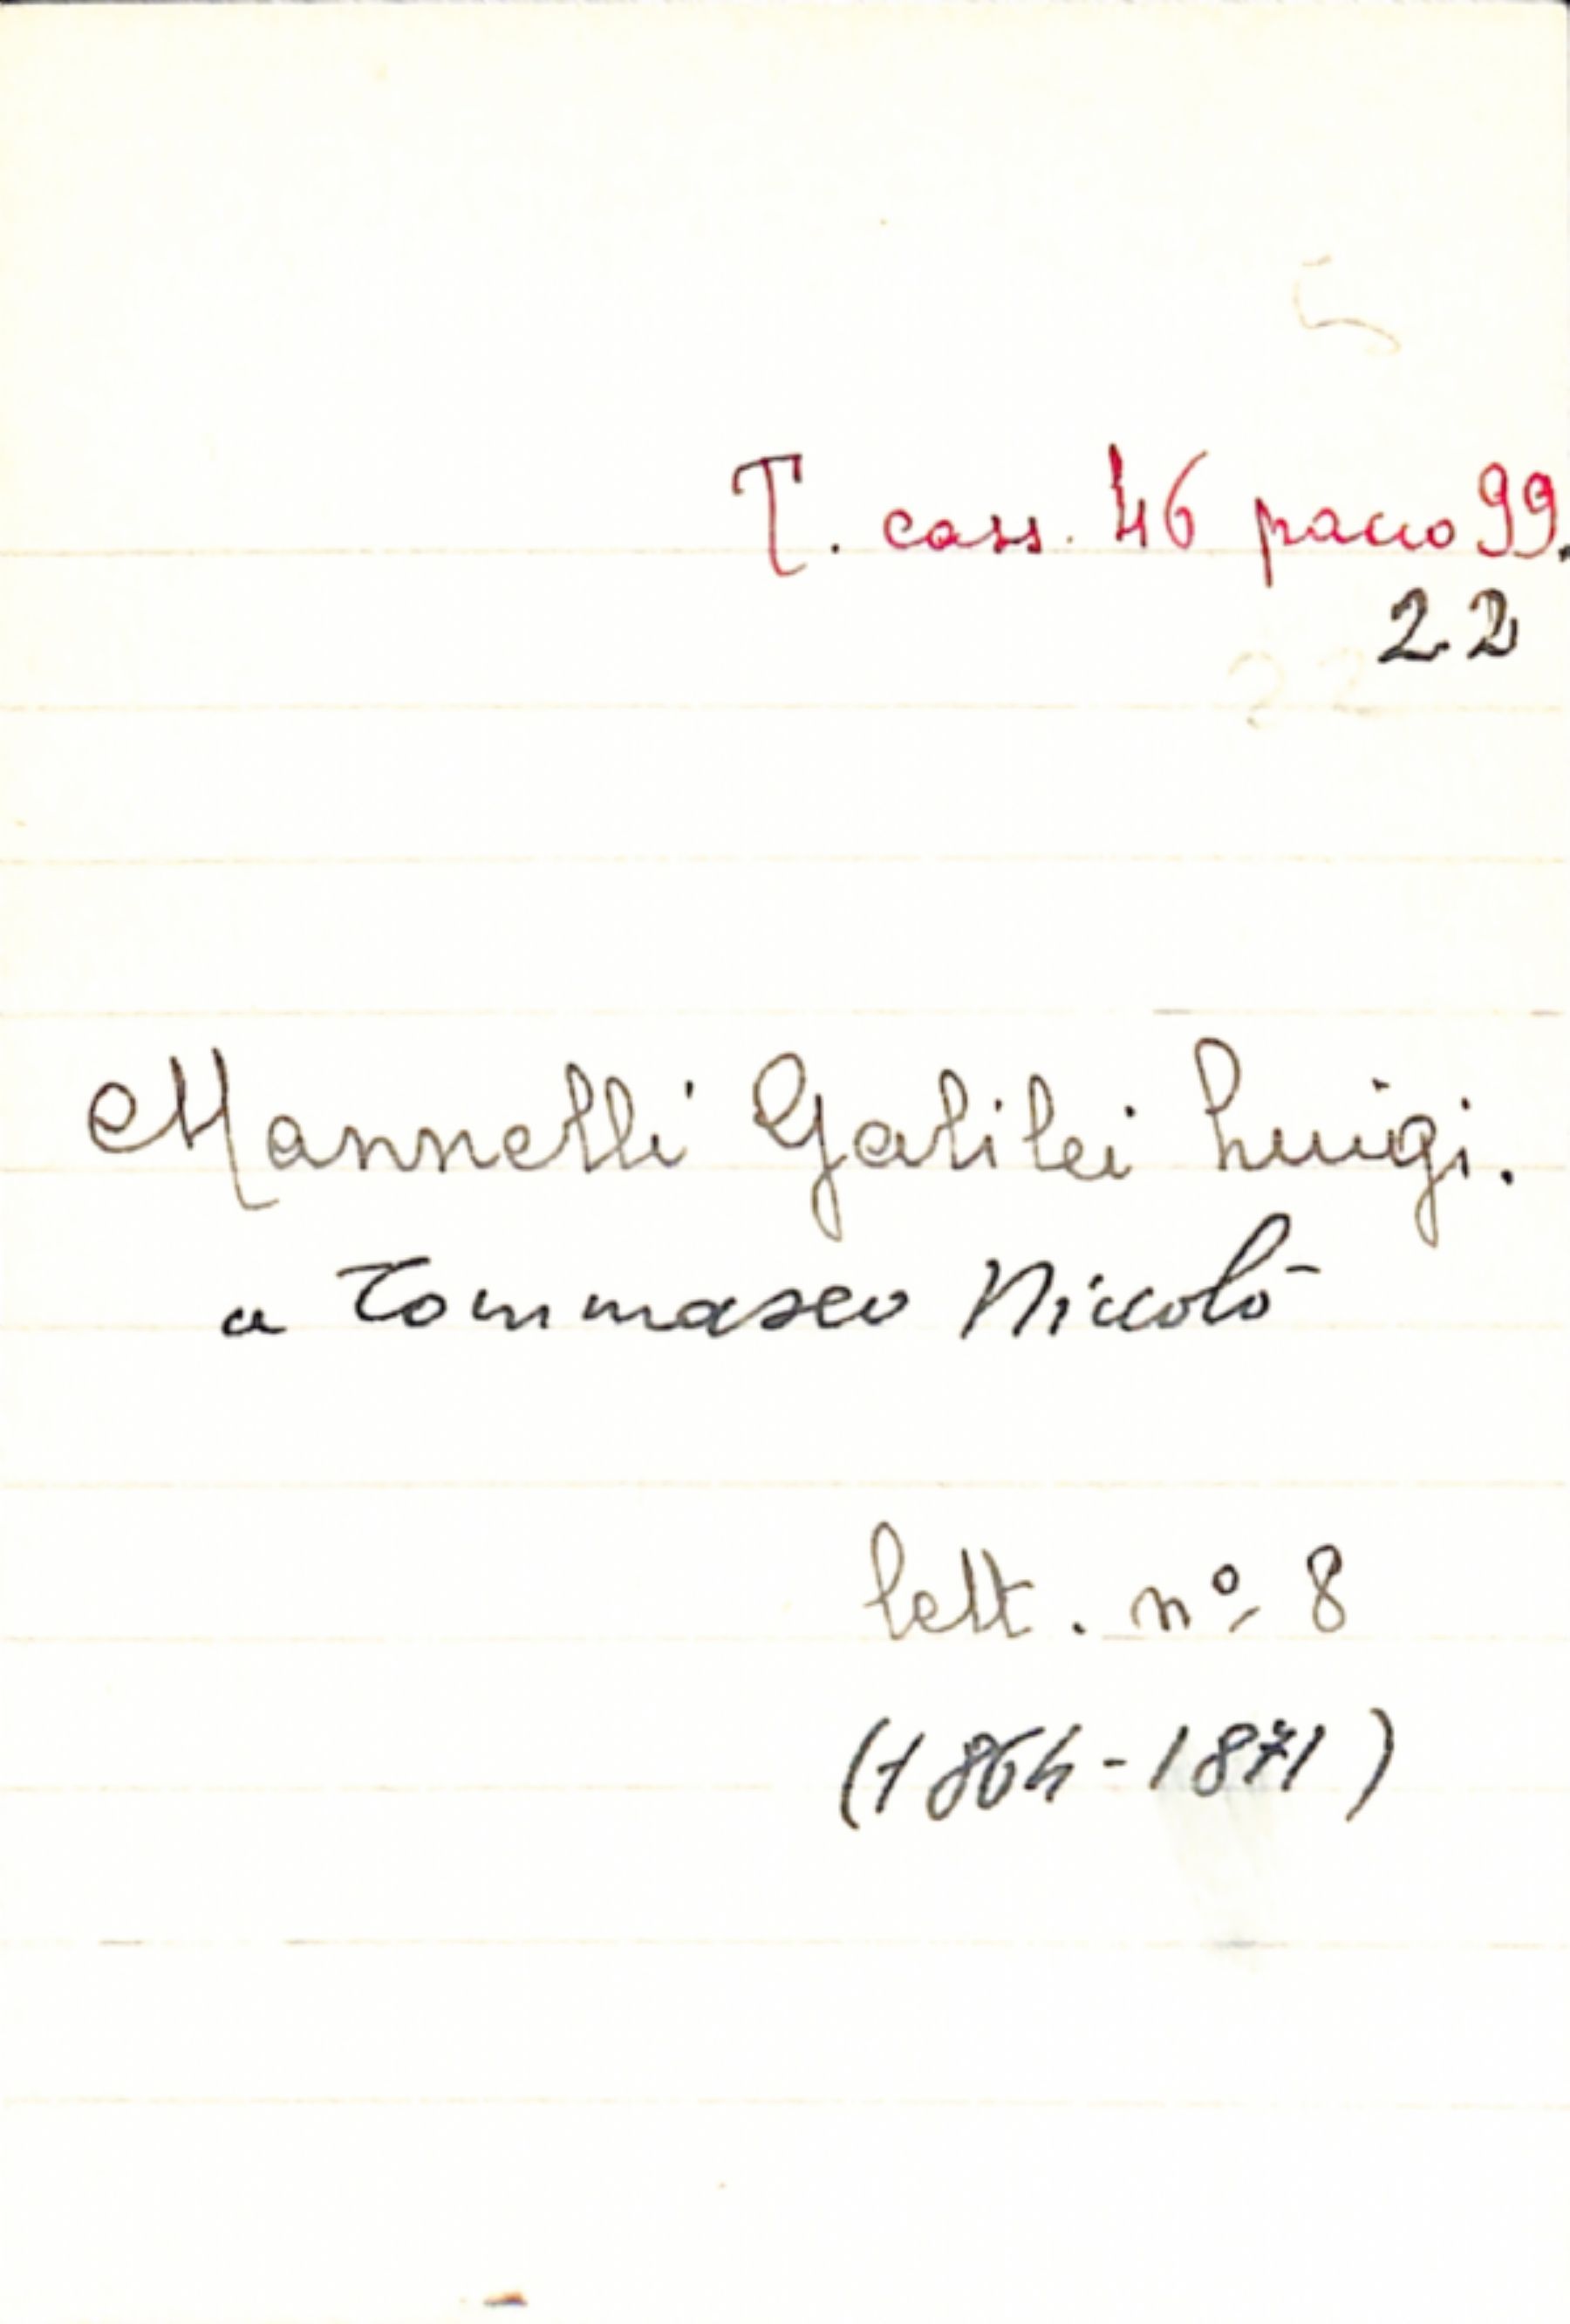 T. cass. 46 pacco 99.
22
Mannelli Galilei Luigi.
a Tommaseo Niccolò
lett. nº 8
(1864-1871)